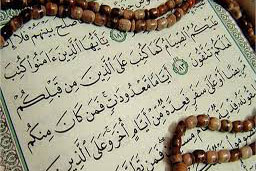 بَيْنَهُمْ فَلَآ
يَٰٓأَيُّهَا ٱلَّذِينَ ءَامَنُوا۟ كُتِبَ
عَلَيْكُمُ ٱلصِّيَامُ كَمَا كُتِبَ عَلَى ٱلَّذِينَ مِن قَبْلِكُمْ
لَعَلَّكُمْ تَتَّقُونَ ١٨٣ أَيَّامًا مَّعْدُودَٰتٍ فَمَن كَانَ مِنكُم
مَّرِيضًا أَوْ عَلَىٰ سَفَرٍ فَعِدَّةٌ مِّنْ أَيَّامٍ أُخَرَ وَعَلَى ٱلَّذِينَ
فَمَن